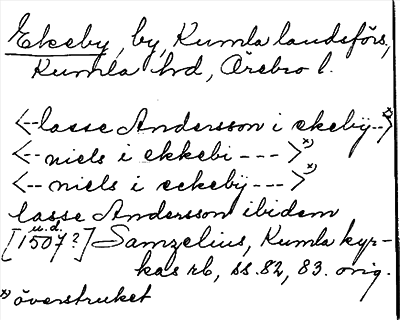 Ekeby, by, Kumla landsförs.,
Kumla hd, Örebro l.
<--lasse Andersson i ekebÿ--> x)
<--niels i ekkebi ---> x)
<-- niels i eckebÿ ---> x)
lasse Andersson ibidem
u.d.
[1507?] Samzelius, Kumla kyr-
kas rb, ss. 82, 83. orig.
x) överstruket